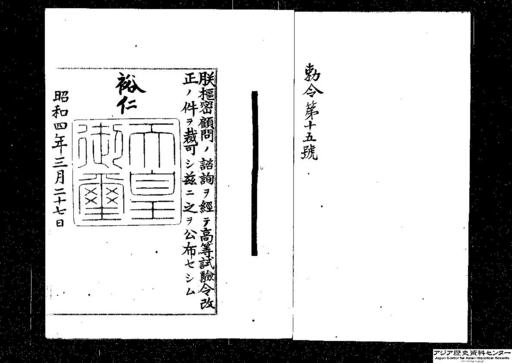 勅令第十五號
朕樞密顧問ノ諮詢ヲ經テ高等試驗令改
正ノ件ヲ裁可シ茲ニ之ヲ公布セシム
裕仁
天皇
御璽
昭和四年三月二十七日
アジア歴史資料センター
Japan Center for Asian Historical Records